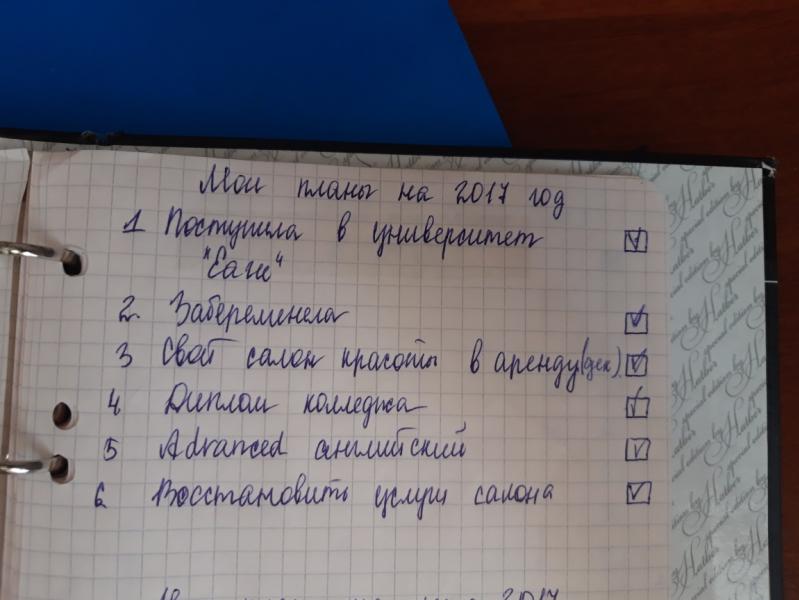 Мои планы на 2017 год
1 Поступила в университет
2. Забеременела
3 Свой салон красоты в аренду (дек).
4 Диплом колледжа
5 Advanced английский
6 Восстановить услуги салона
2017